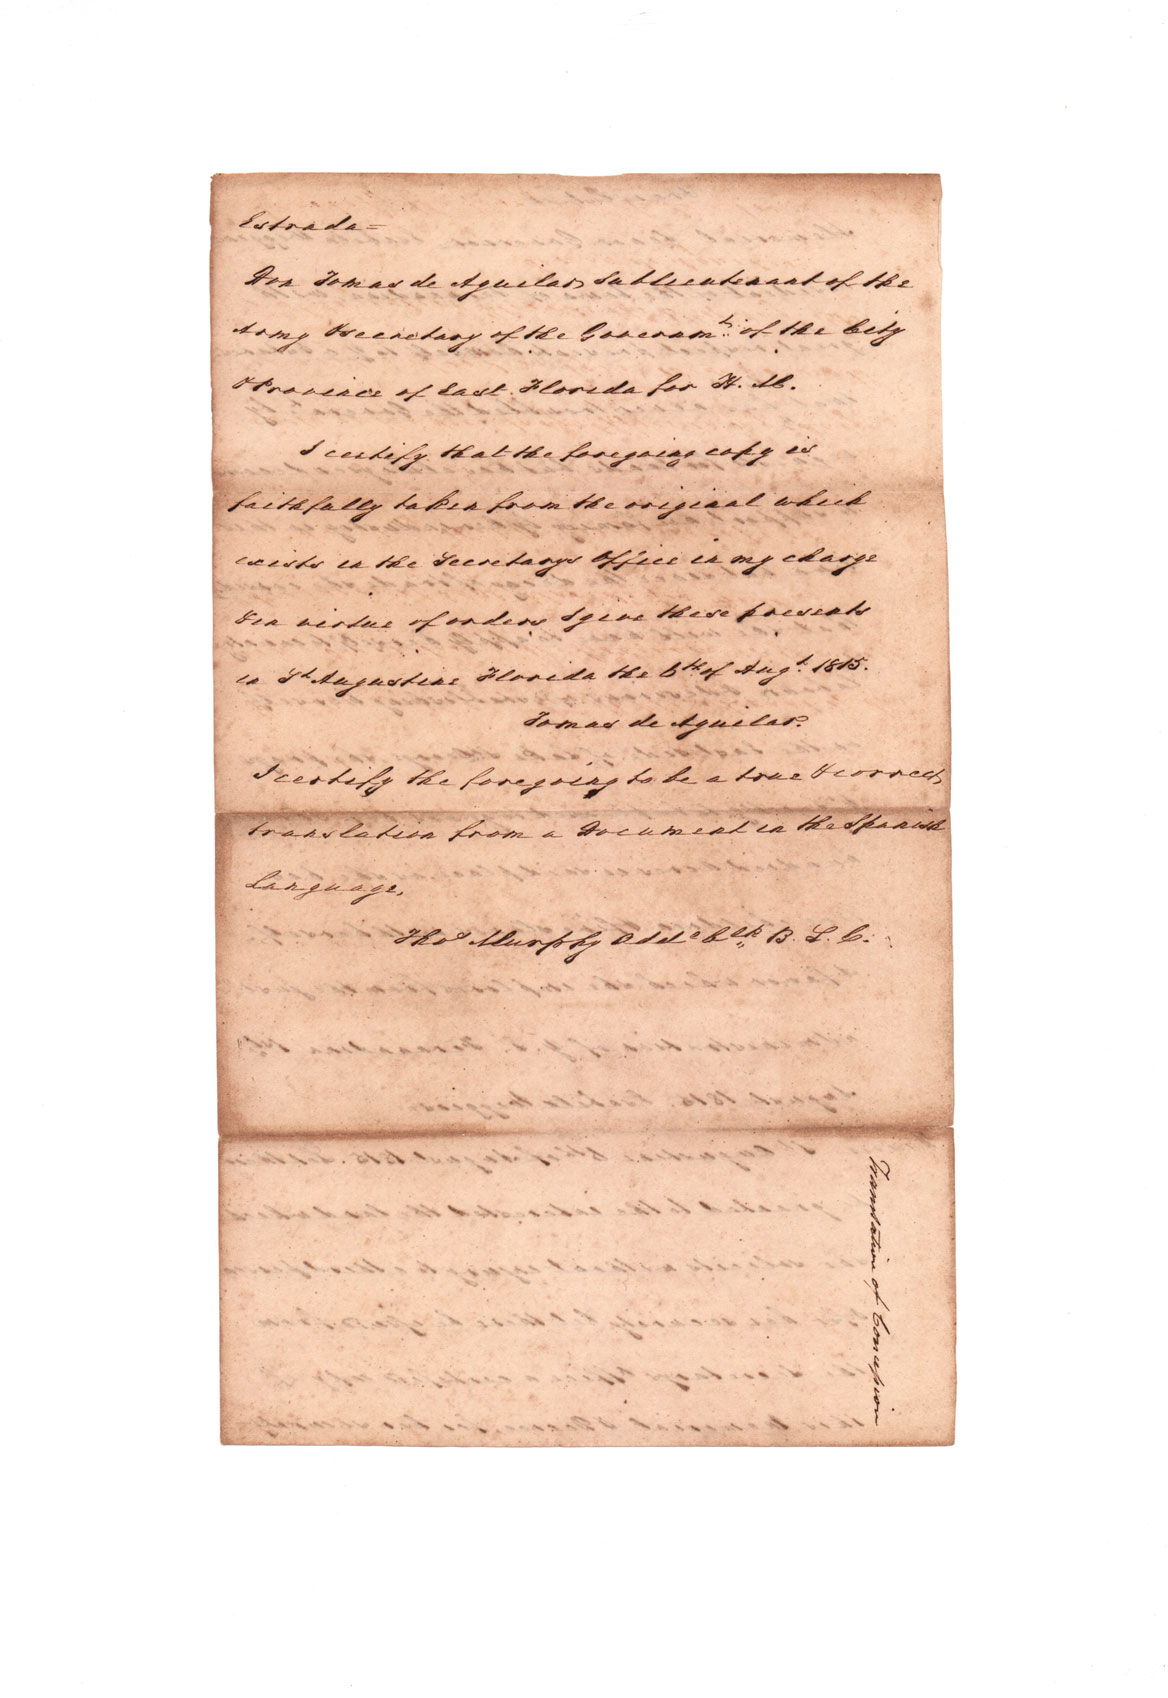 Estrada=
Don Tomas de Aguilar Sublieutenant of the
Army & Secretary of the Governmt. of the City
& Province of East Florida for H. M.
I certify that the foregoing copy is
faithfully taken from the original which
exists in the Secretarys Office in my charge
& in virtue of orders I give these presents
in St. Augustine Florida the 6th of Augt. 1815.
Tomas de Aguilar.
I certify the foregoing to be a true & correct
translation from a Document in the Spanish
Language,
Thos Murphy Clk B. L. C.
Translation of Concession